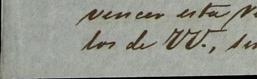 vencer esta
los de VV.,